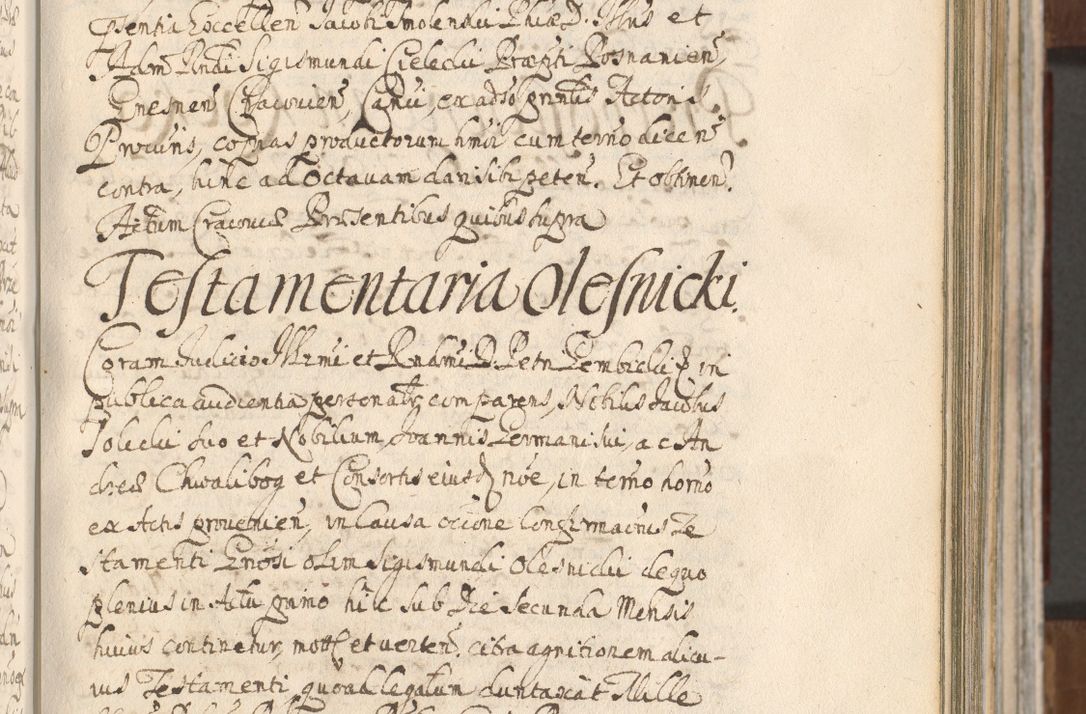 sentia Excellen Jacobi Smolenski Phiae D. Illius et
Adm Rndi Sigismundi Cielecki Praepti Posnanien,
Gnesnen Cracovien, Canci, ex adso prntis Actoris
Procuris, copias productorum hmoi cum termo dicen
contra, hinc ad Octavam dari sibi peten. Et obtinen.
Actum Cracoviae Praesentibus quibus supra
Testamentaria Olesnicki.
Coram Judicio Illrmi et Rndmi D. Petri Gembicki in
publica audientia personalr comparens, Nobilis Jacobus
Solecki suo et Nobilium Joannis Germani sui, ac An
dreae Chwalibog et Consortis eiusd noe, in termo horno
ex Actis provenien, in Causa occone Confirmaonis Te
stamenti Gnosi olim Sigismundi Olesnicki de quo
plenius in Actu primo hic sub Die secunda Mensis
huius continetur, mott et verten. citra agnitionem alicu-
ius Testamenti quoad legatum duntaxat Mille